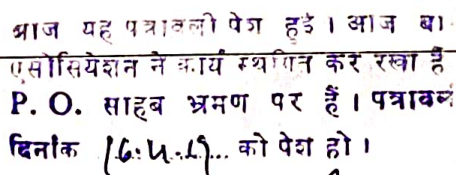 आज यह पत्रावली पेश हुई। आज बा
एसोसियेशन ने कार्य स्थगित कर रखा है
P. O. साहब भ्रमण पर हैं। पत्रावल
दिनांक ... को पेश हो।